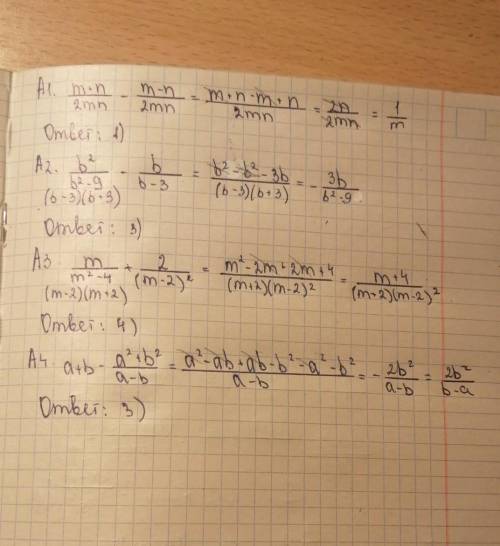 А1. (m+n)/(2mn) - (m-n)/(2mn) = (m+n-m+n)/(2mn) = 2n/(2mn) = 1/m
Ответ: 1)
А2. b²/(b²-9) - b/(b-3) = (b²-b²-3b)/((b-3)(b+3)) = - 3b/(b²-9)
(b-3)(b+3)
Ответ: 3)
А3 m/(m²-4) + 2/(m-2)² = (m²-2m+2m+4)/((m+2)(m-2)²) = (m+4)/((m+2)(m-2)²)
(m-2)(m+2)
Ответ: 4)
А4. a+b - (a²+b²)/(a-b) = (a²-ab+ab-b²-a²-b²)/(a-b) = - 2b²/(a-b) = 2b²/(b-a)
Ответ: 3)